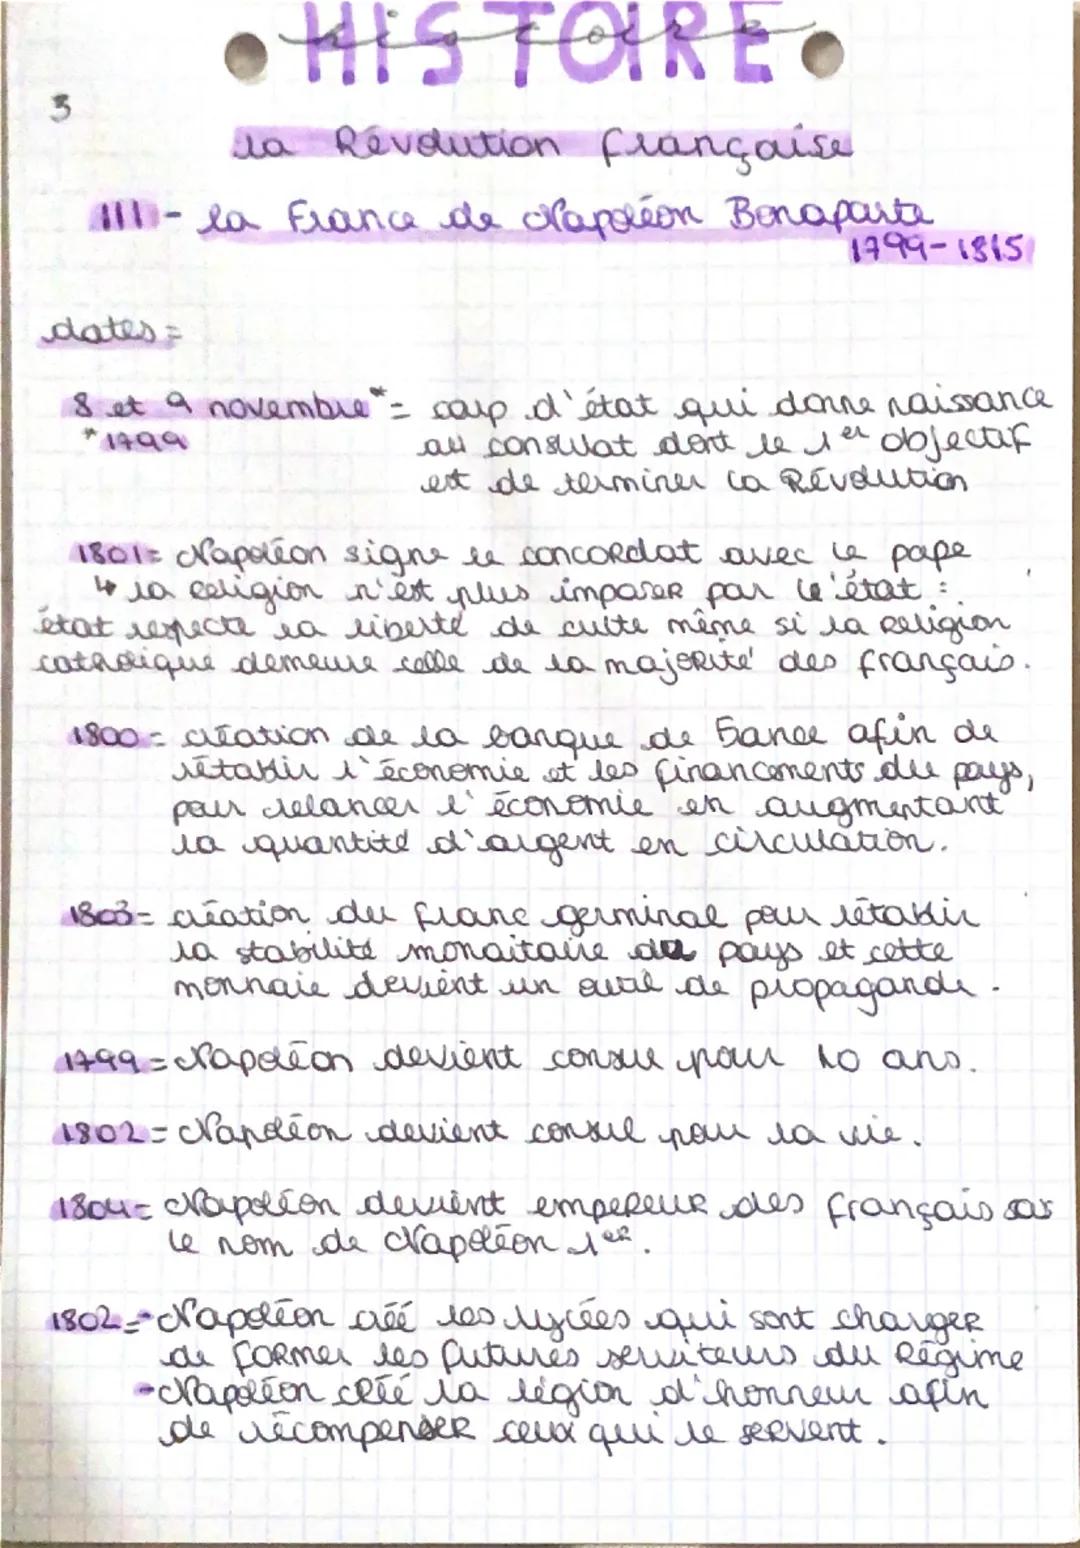 HISTOIRE
3
la Révolution française
III - la France de Napoléon Bonaparte
1799-1815
dates =
8 et 9 novembre* = coup d'état qui donne naissance
*1799 au consulat dont le 1er objectif
est de terminer la Révolution
1801 = Napoléon signe le concordat avec le pape
↳ la religion n'est plus imposer par l'état :
état respecte la liberté de culte même si la religion
catholique demeure celle de la majorité des français.
1800 = création de la banque de France afin de
rétablir l'économie et les financements du pays,
pour relancer l'économie en augmentant
la quantité d'argent en circulation.
1803 = création du franc germinal pour rétablir
la stabilité monaitaire du pays et cette
monnaie devient un outil de propagande.
1799 = Napoléon devient consul pour 10 ans.
1802 = Napoléon devient consul pour la vie.
1804 = Napoléon devient empereur des français sous
le nom de Napoléon 1er.
1802 = - Napoléon créé les lycées qui sont charger
de former les futures serviteurs du Régime
- Napoléon créé la légion d'honneur afin
de récompenser ceux qui le servent.